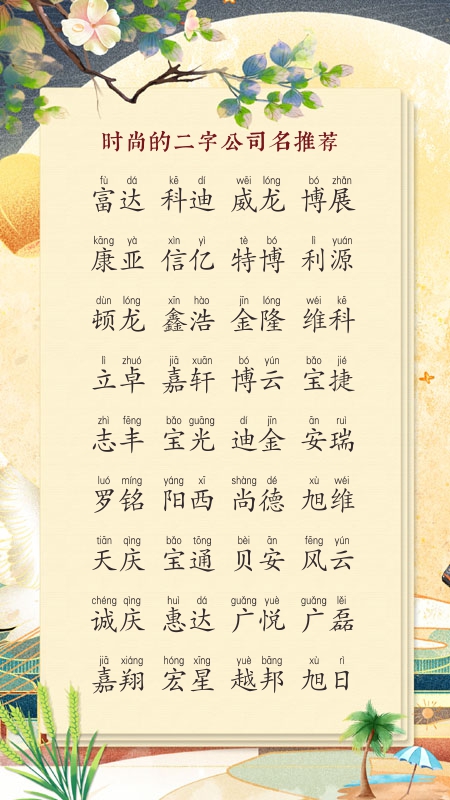 时尚的二字公司名推荐
fù dá kē dí wēi lóng bó zhǎn
富达 科迪 威龙 博展
kāng yà xìn yì tè bó lì yuán
康亚 信亿 特博 利源
dùn lóng xīn hào jīn lóng wéi kē
顿龙 鑫浩 金隆 维科
lì zhuó jiā xuān bó yún bǎo jié
立卓 嘉轩 博云 宝捷
zhì fēng bǎo guāng dí jīn ān ruì
志丰 宝光 迪金 安瑞
luó míng yáng xī shàng dé xù wéi
罗铭 阳西 尚德 旭维
tiān qìng bǎo tōng bèi ān fēng yún
天庆 宝通 贝安 风云
chéng qìng huì dá guǎng yuè guǎng lěi
诚庆 惠达 广悦 广磊
jiā xiáng hóng xīng yuè bāng xù rì
嘉翔 宏星 越邦 旭日